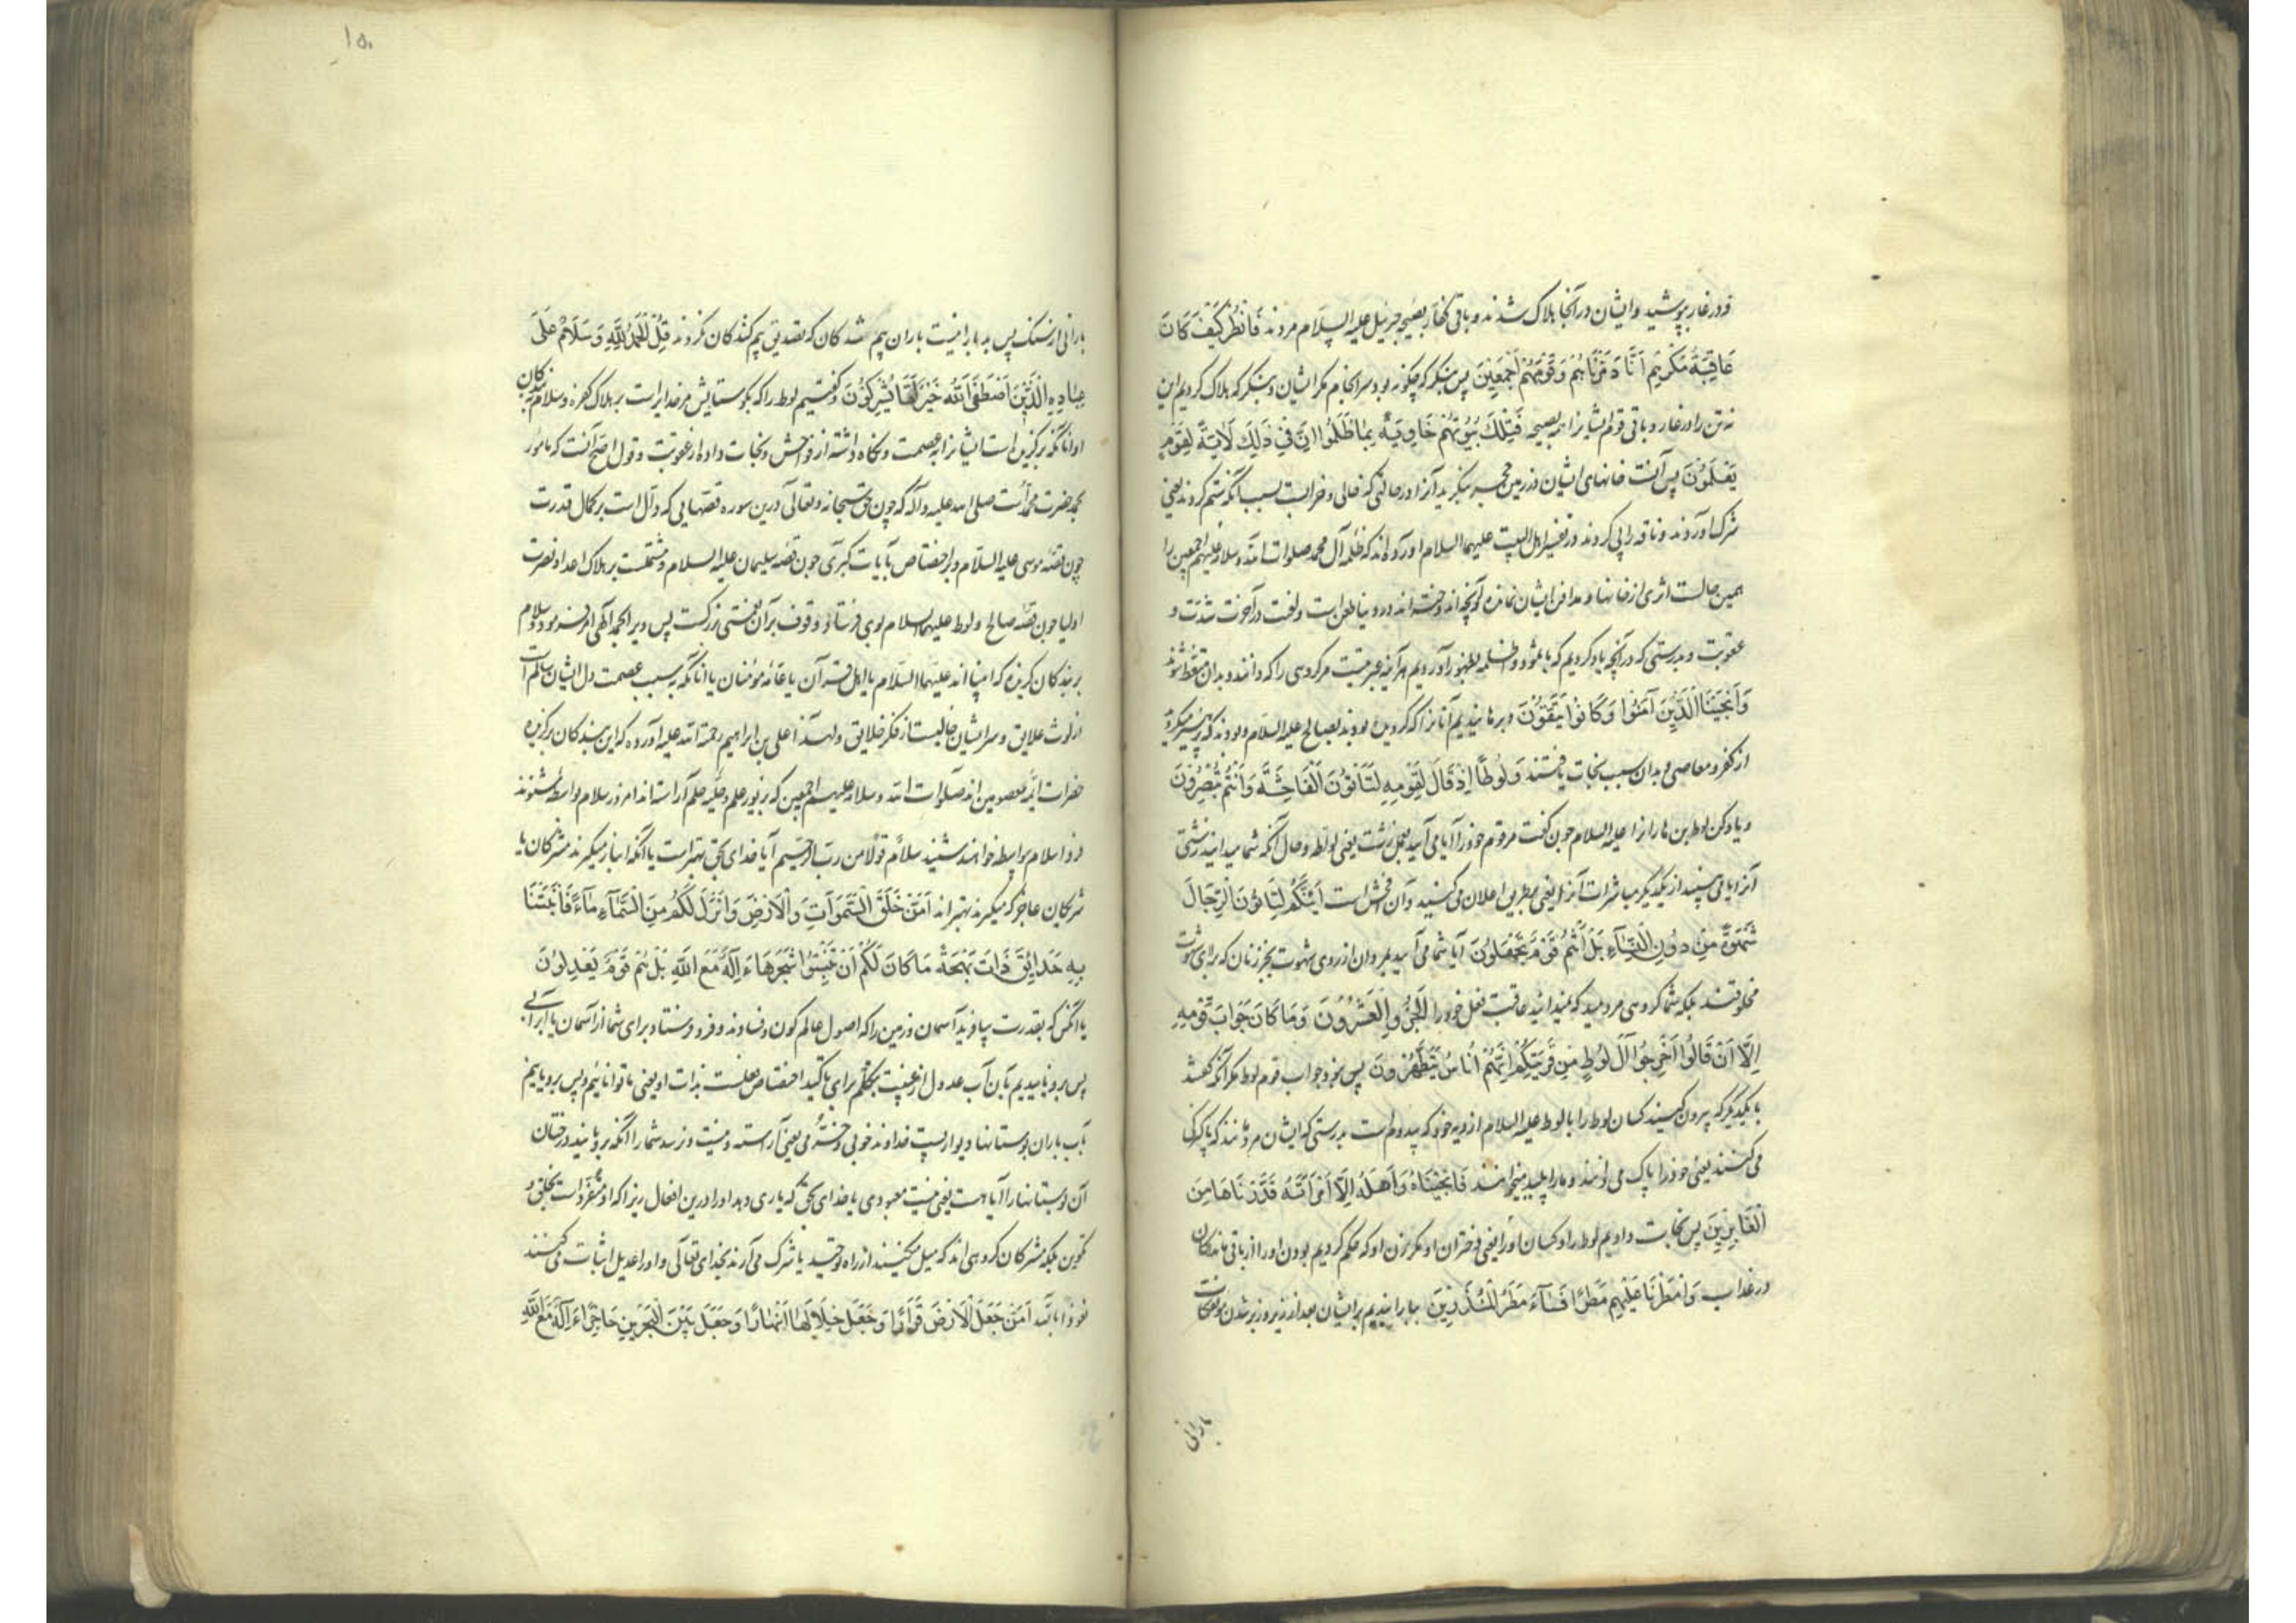 و در غار بپوشید و ایشان در آنجا هلاک شدند و باقی کفار بصیحه جبرئیل علیه السلام مردند فَانْظُرْ كَیْفَ كَانَ
عَاقِبَةُ مَكْرِهِمْ اَنَّا دَمَّرْنَاهُمْ وَقَوْمَهُمْ اَجْمَعِینَ پس بنگر که چگونه بود سرانجام مکر ایشان و بنگر که هلاک کردیم این
نه تن را در غار و باقی قوم ایشانرا بصیحه فَتِلْكَ بُیُوتُهُمْ خَاوِیَةً بِمَا ظَلَمُوا اِنَّ فِی ذَلِكَ لَآیَةً لِقَوْمٍ
یَعْلَمُونَ پس آنست خانهای ایشان در زمین حجر بنگرید آنرا در حالتی که خالی و خرابست بسبب آنکه ستم کردند یعنی
شرک آوردند و ناقه را پی کردند و در تفسیر اهل البیت علیهم السلام آورده اند که ظلمه آل محمد صلوات الله و سلامه علیهم اجمعین را
همین حالست اثری از خانها و مدافن ایشان نمانده و آنچه اندوخته اند در دنیا طعن است و لعنت و در آخرت شدت و
عقوبت و بدرستی که در آنچه یاد کردیم که با ثمود و ظلمه بظهور آوردیم هر آینه عبرتیست مر گروهی را که دانند و بدان متعظ شوند
وَاَنْجَیْنَا الَّذِینَ آمَنُوا وَكَانُوا یَتَّقُونَ و برهانیدیم آنانرا که گرویده بودند بصالح علیه السلام و بودند که پرهیز میکردند
از کفر و معاصی و بدان سبب نجات یافتند وَلُوطًا اِذْ قَالَ لِقَوْمِهِ اَتَأْتُونَ الْفَاحِشَةَ وَاَنْتُمْ تُبْصِرُونَ
و یاد کن لوط بن هاران را علیه السلام چون گفت مر قوم خود را آیا می آیید بفعل زشت یعنی لواطه و حال آنکه شما میدانید زشتی
آنرا یا می بینید از یکدیگر مباشرت آنرا یعنی بطریق اعلان می کنید و آن فحش است اَئِنَّكُمْ لَتَأْتُونَ الرِّجَالَ
شَهْوَةً مِنْ دُونِ النِّسَآءِ بَلْ اَنْتُمْ قَوْمٌ تَجْهَلُونَ آیا شما می آیید بمردان از روی شهوت بجز زنان که برای شهوت
مخلوقند بلکه شما گروهی مردمید که نمیدانید عاقبت فعل خود را الجزؤ العشرون وَمَا كَانَ جَوَابَ قَوْمِهِ
اِلَّا اَنْ قَالُوا اَخْرِجُوا آلَ لُوطٍ مِنْ قَرْیَتِكُمْ اِنَّهُمْ اُنَاسٌ یَتَطَهَّرُونَ پس نبود جواب قوم لوط مگر آنکه گفتند
با یکدیگر که بیرون کنید کسان لوط را با لوط علیه السلام از دیه خود که سدوم است بدرستی که ایشان مردمانند که پاکی
می کنند یعنی خود را پاک می دانند و ما را پلید میخوانند فَاَنْجَیْنَاهُ وَاَهْلَهُ اِلَّا امْرَاَتَهُ قَدَّرْنَاهَا مِنَ
الْغَابِرِینَ پس نجات دادیم لوط را و کسان او را یعنی دختران او مگر زن او که حکم کردیم بودن او را از باقی ماندکان
در عذاب وَاَمْطَرْنَا عَلَیْهِمْ مَطَرًا فَسَآءَ مَطَرُ الْمُنْذَرِینَ ببارانیدیم بر ایشان بعد از زیر و زبر شدن مؤتفکات
بارانی
۱۵۰
بارانی از سنگ پس بد بارانیست باران بیم شدکان که تصدیق بیم کنندکان نکردند قُلِ الْحَمْدُ لِلَّهِ وَسَلَامٌ عَلَی
عِبَادِهِ الَّذِینَ اصْطَفَی آللَّهُ خَیْرٌ اَمَّا یُشْرِكُونَ و گفتیم لوط را که بگو ستایش مر خدایراست بر هلاک کفره و سلام بر بندگان
او آنانکه برگزیده است ایشانرا بعصمت و نگاه داشته از فواحش و نجات داده از عقوبت و قول اصح آنست که مامور
بحمد حضرت محمد است صلی الله علیه و آله که چون حق سبحانه و تعالی درین سوره قصهایی که دال است بر کمال قدرت
چون قصه موسی علیه السلام و بر اختصاص بآیات کبری چون قصه سلیمان علیه السلام و مشتملست بر هلاک اعدا و نصرت
اولیا چون قصه صالح و لوط علیهما السلام بوی فرستاد و وقوف بر آن نعمتی بزرگست پس ویرا بحمد الهی امر فرمود و سلام
بر بندکان گزیده که انبیااند علیهم السلام یا اهل قرآن یا عامه مؤمنان یا آنانکه بسبب عصمت دل ایشان سالم است
از لوث علایق و سر ایشان خالیست از فکر خلایق و لهذا علی بن ابراهیم رحمة الله علیه آورده که این بندکان برگزیده
حضرات ائمه معصومین اند صلوات الله و سلامه علیهم اجمعین که بزیور علم و حلیه حلم آراسته اند امروز سلام بواسطه شنوند
فردا سلام بیواسطه خواهند شنید سلام قولا من رب الرحیم آیا خدای بحق بهتر است یا آنکه انباز میگیرند مشرکان یا
شریکان عاجز که میگیرند بهتراند اَمَّنْ خَلَقَ السَّمَوَاتِ وَالْاَرْضَ وَاَنْزَلَ لَكُمْ مِنَ السَّمَآءِ مَآءً فَاَنْبَتْنَا
بِهِ حَدَآئِقَ ذَاتَ بَهْجَةٍ مَا كَانَ لَكُمْ اَنْ تُنْبِتُوا شَجَرَهَا ءَاِلَهٌ مَعَ اللَّهِ بَلْ هُمْ قَوْمٌ یَعْدِلُونَ
یا آنکس که بقدرت بیافرید آسمان و زمین را که اصول عالم کون و فسادند و فرو فرستاد برای شما از آسمان یا ابر آبی
پس برویانیدیم بآن آب عدول از غیبت بتکلم برای تاکید اختصاص فعلست بذات او یعنی ما توانائیم و پس برویانیم
بآب باران بوستانها دیواربست خداوند خوبی و خرمی یعنی آراسته و نیست و نرسد شما را آنکه برویانید درختان
آن بوستانها را آیا هست یعنی نیست معبودی با خدای بحق که یاری دهد او را درین افعال زیرا که او متفرد است بخلق و
تکوین بلکه مشرکان گروهی اند که میل میکنند از راه توحید یا شرک می آرند بخدای تعالی و او را عدیل اثبات می کنند
نعوذ بالله اَمَّنْ جَعَلَ الْاَرْضَ قَرَارًا وَجَعَلَ خِلَالَهَا اَنْهَارًا وَجَعَلَ بَیْنَ الْبَحْرَیْنِ حَاجِزًا ءَاِلَهٌ مَعَ اللَّهِ